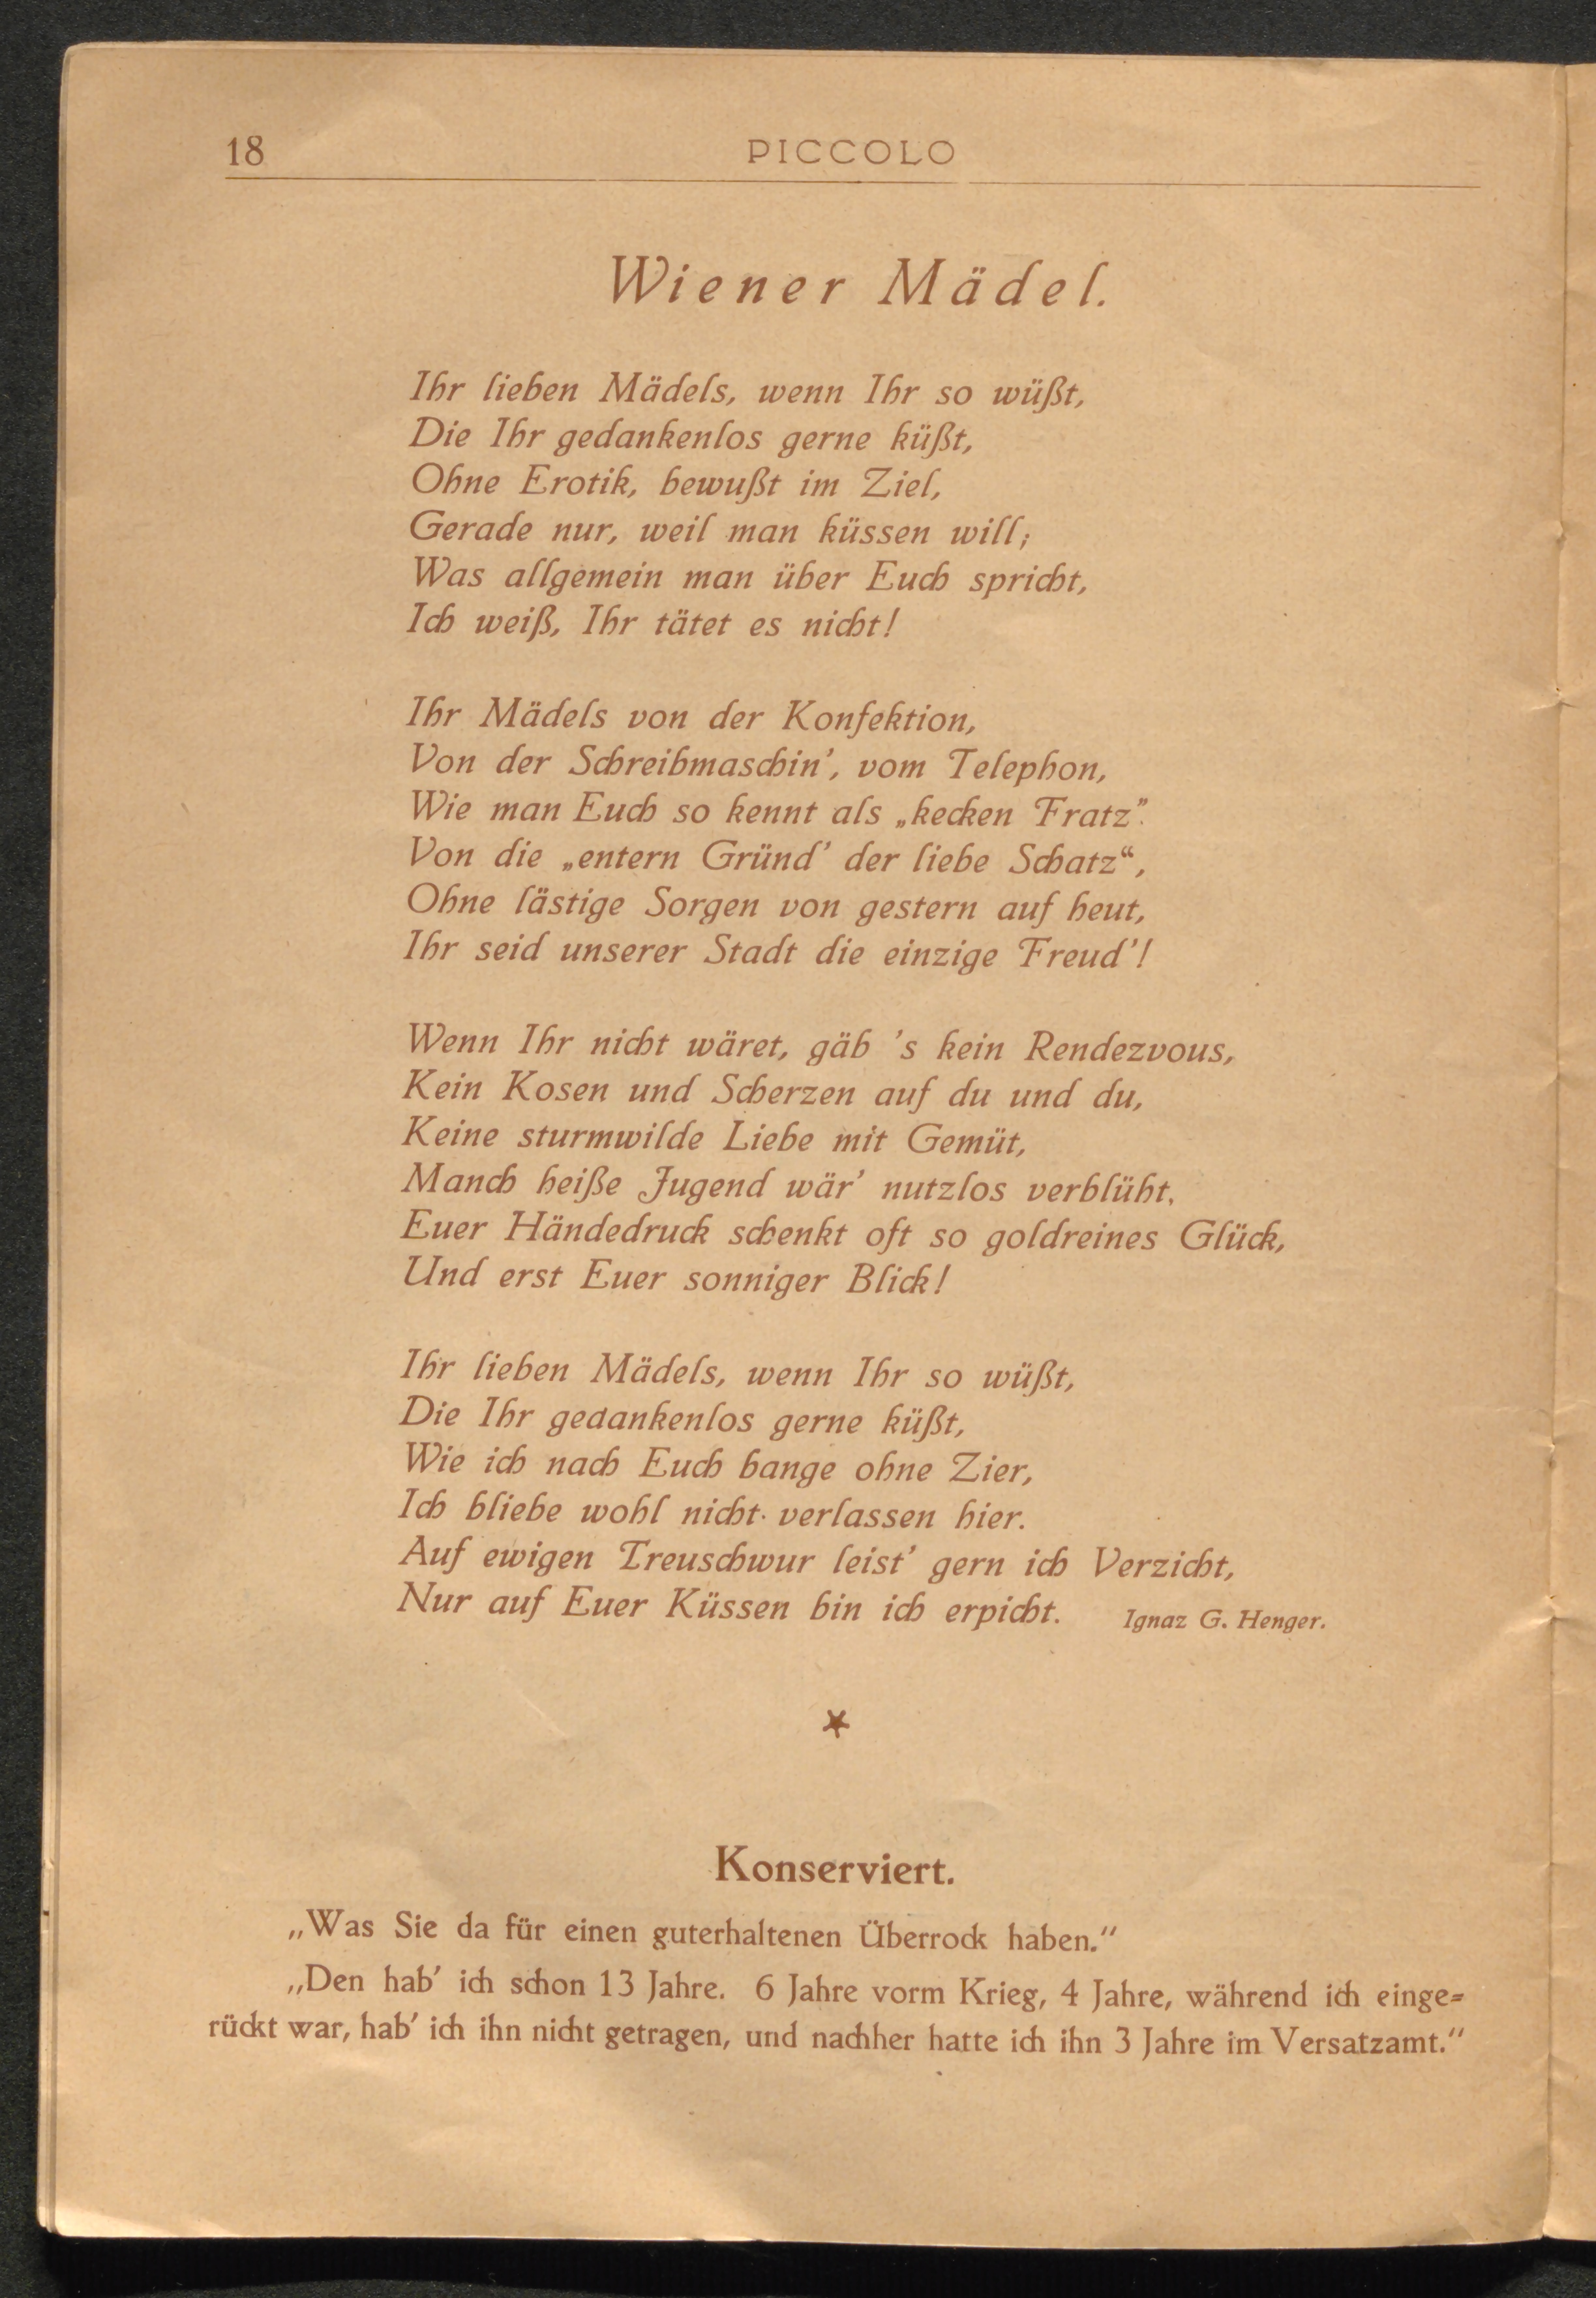 18
PICCOLO
Wiener Mädel.
Ihr lieben Mädels, wenn Ihr so wüßt,
Die Ihr gedankenlos gerne küßt,
Ohne Erotik, bewußt im Ziel,
Gerade nur, weil man küssen will;
Was allgemein man über Euch spricht,
Ich weiß, Ihr tätet es nicht!
Ihr Mädels von der Konfektion,
Von der Schreibmaschin’, vom Telephon,
Wie man Euch so kennt als „kecken Fratz”.
Von die „entern Gründ’ der liebe Schatz“,
Ohne lästige Sorgen von gestern auf heut,
Ihr seid unserer Stadt die einzige Freud’!
Wenn Ihr nicht wäret, gäb ’s kein Rendezvous,
Kein Kosen und Scherzen auf du und du,
Keine sturmwilde Liebe mit Gemüt,
Manch heiße Jugend wär’ nutzlos verblüht.
Euer Händedruck schenkt oft so goldreines Glück,
Und erst Euer sonniger Blick!
Ihr lieben Mädels, wenn Ihr so wüßt,
Die Ihr gedankenlos gerne küßt,
Wie ich nach Euch bange ohne Zier,
Ich bliebe wohl nicht verlassen hier.
Auf ewigen Treuschwur leist’ gern ich Verzicht,
Nur auf Euer Küssen bin ich erpicht. Ignaz G. Henger.
*
Konserviert.
„Was Sie da für einen guterhaltenen Überrock haben.“
„Den hab’ ich schon 13 Jahre. 6 Jahre vorm Krieg, 4 Jahre, während ich einge=
rückt war, hab’ ich ihn nicht getragen, und nachher hatte ich ihn 3 Jahre im Versatzamt.“